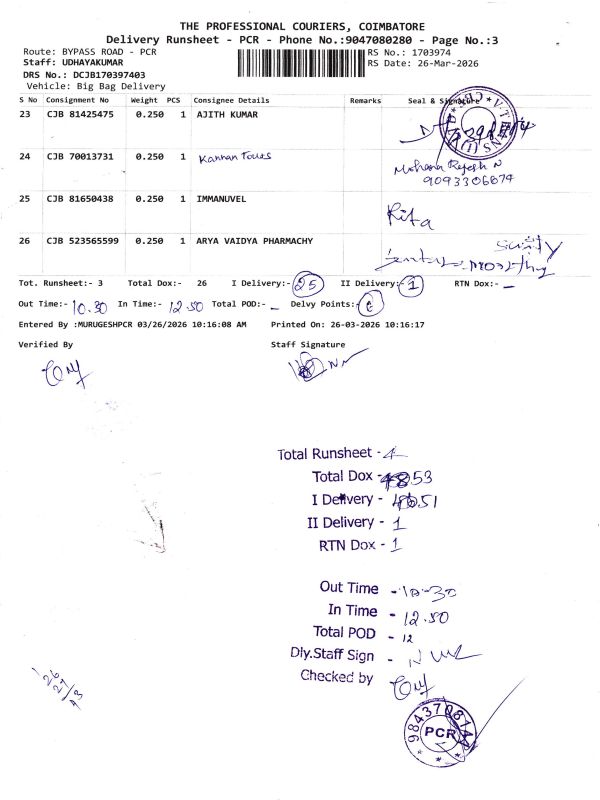 THE PROFESSIONAL COURIERS, COIMBATORE
Delivery Runsheet - PCR - Phone No.:9047080280 - Page No.:3
Route: BYPASS ROAD - PCR
RS No.: 1703974
Staff: UDHAYAKUMAR
RS Date: 26-Mar-2026
DRS No.: DCJB170397403
Vehicle: Big Bag Delivery
S No Consignment No Weight PCS Consignee Details Remarks Seal & Signature
23 CJB 81425475 0.250 1 AJITH KUMAR
24 CJB 70013731 0.250 1 Kannan Tours
Mohana Rajesh N
9093306674
25 CJB 81650438 0.250 1 IMMANUVEL Rita
26 CJB 523565599 0.250 1 ARYA VAIDYA PHARMACHY
Tot. Runsheet:- 3 Total Dox:- 26 I Delivery:- 25 II Delivery:- 1 RTN Dox:- -
Out Time:- 10.30 In Time:- 12.50 Total POD:- - Delvy Points:-
Entered By :MURUGESHPCR 03/26/2026 10:16:08 AM Printed On: 26-03-2026 10:16:17
Verified By Staff Signature
Total Runsheet - 4
Total Dox - 53
I Delivery - 51
II Delivery - 1
RTN Dox - 1
Out Time - 10-30
In Time - 12.50
Total POD - 12
Dly.Staff Sign -
Checked by
PCR